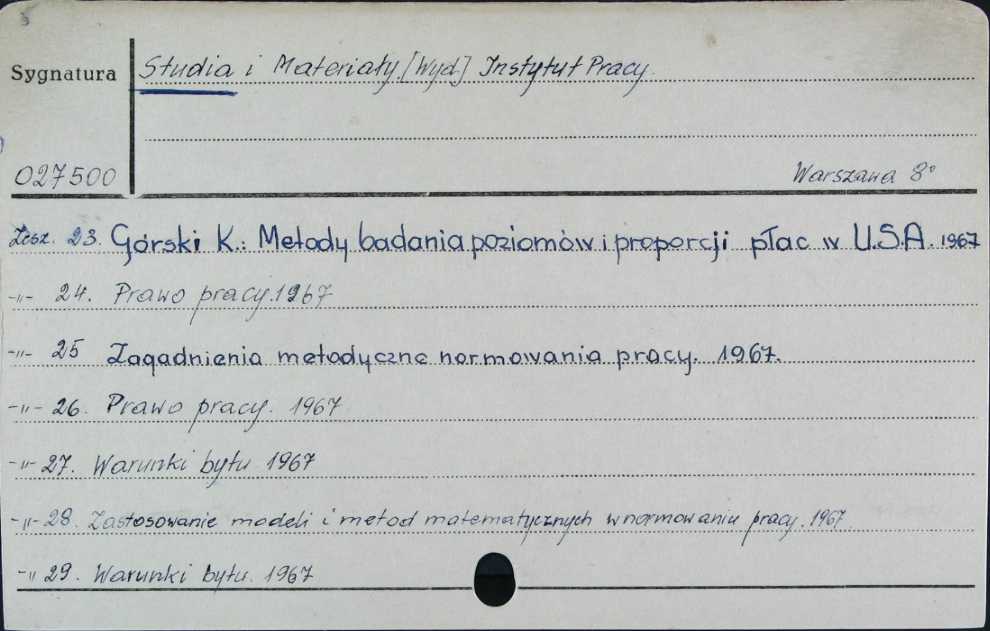 Sygnatura
Studia i Materiały [Wyd] Instytut Pracy.
027500
Warszawa 8°
Zesz. 23. Górski K.: Metody badania poziomów i proporcji płac w U.S.A. 1967
-„- 24. Prawo pracy. 1967
-„- 25 Zagadnienia metodyczne normowania pracy. 1967.
-„- 26. Prawo pracy. 1967
-„- 27. Warunki bytu 1967
-„- 28. Zastosowanie modeli i metod matematycznych w normowaniu pracy. 1967
-„ 29. Warunki bytu. 1967